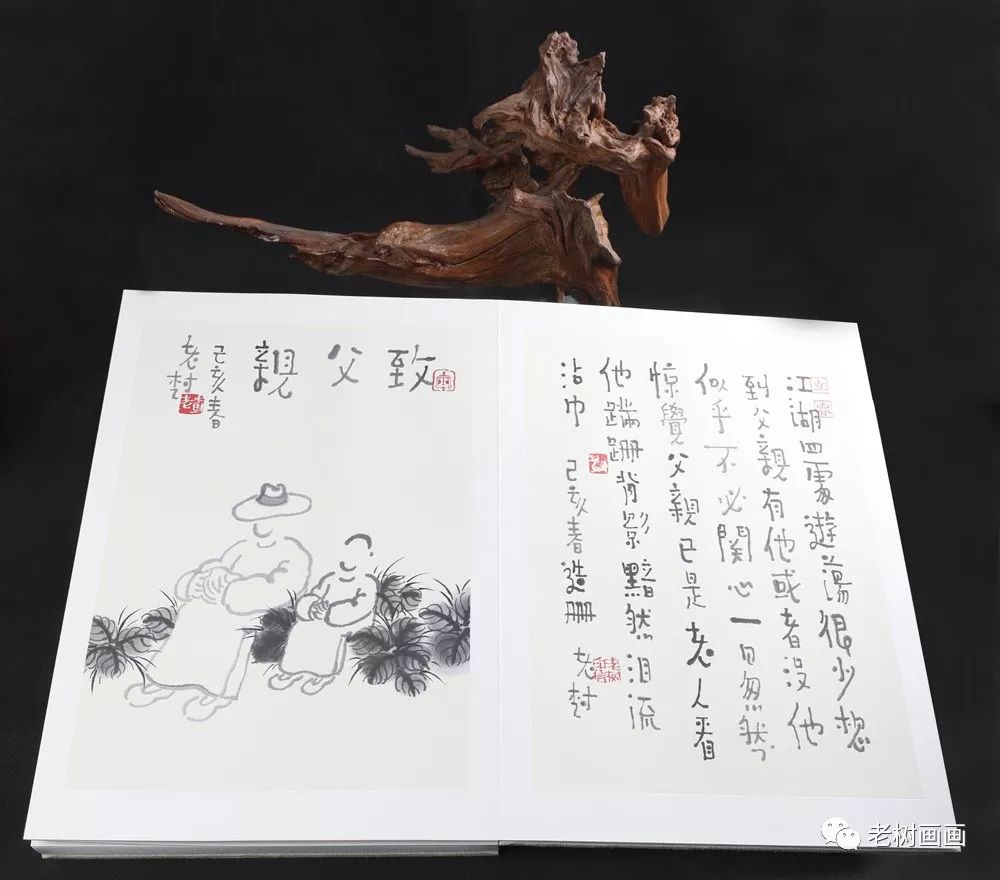 致父親
己亥春
老树
江湖四處遊蕩很少想
到父親有他或者没他
似乎不必関心一日忽然
惊覺父親已是老人看
他蹒跚背影黯然泪流
沾巾 己亥春造册 老树
老树画画